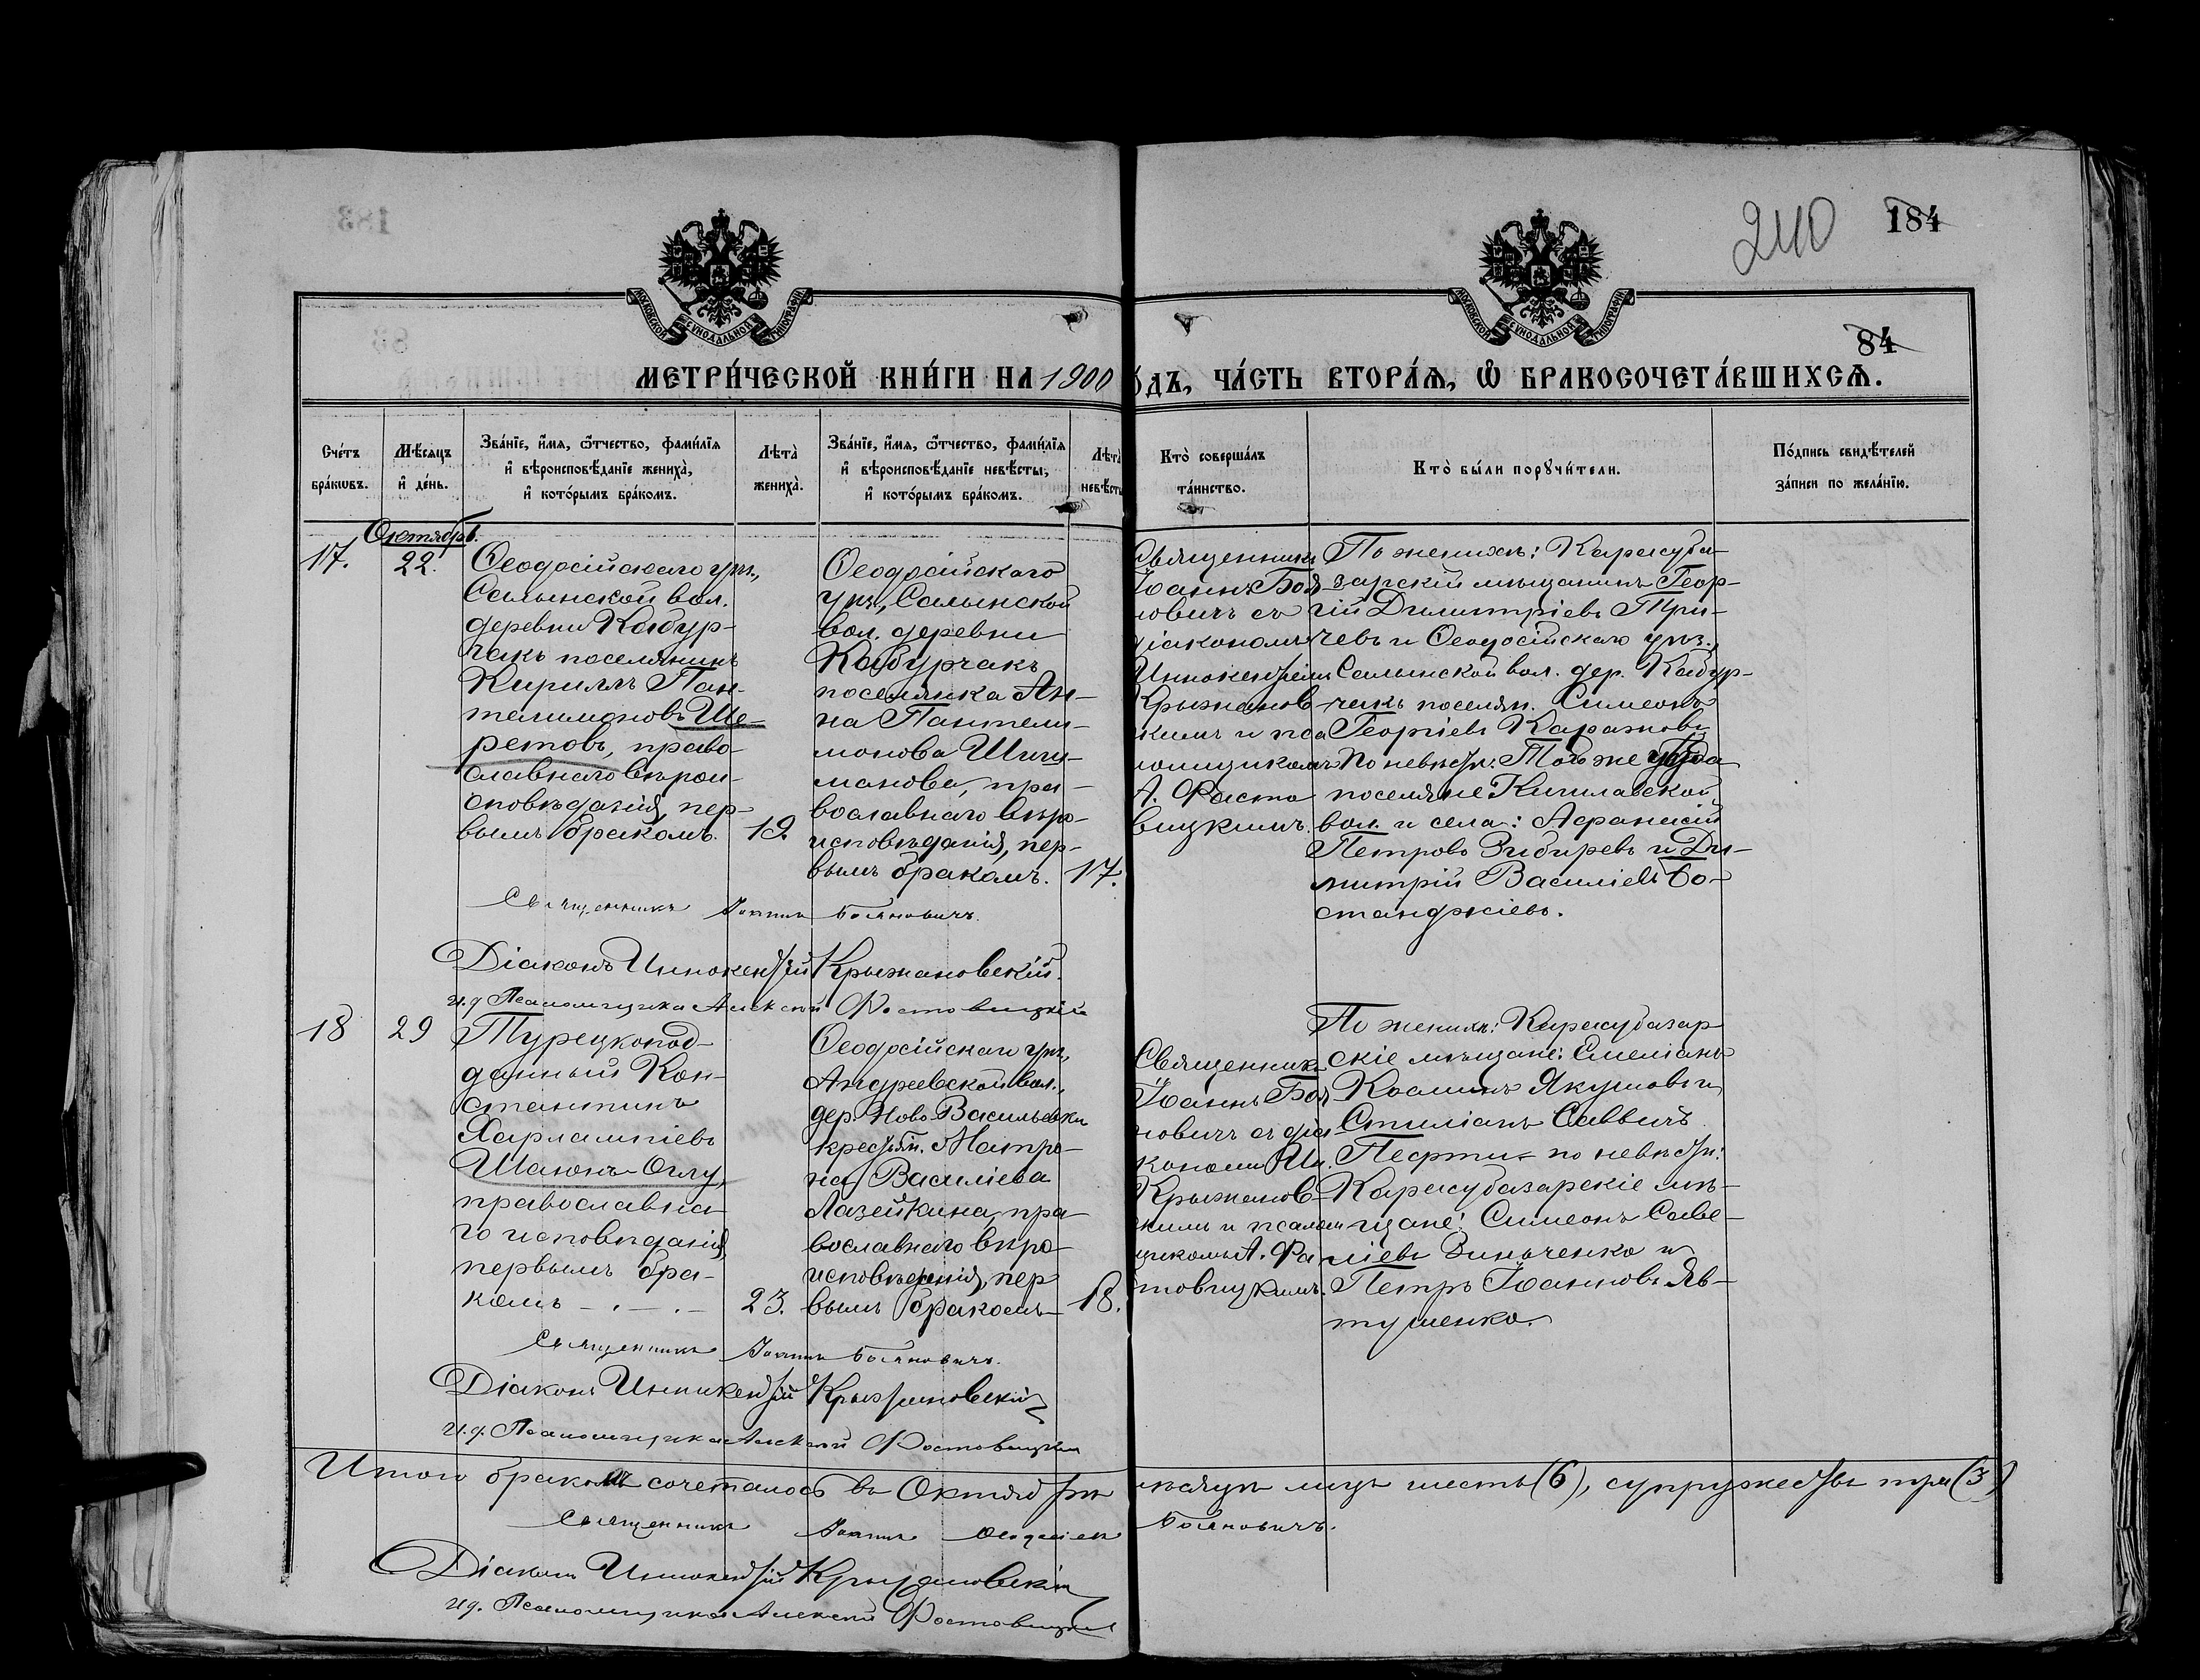 240
184
МОСКОВСКОЙ СѴНОДАЛЬНОЙ ТИПОГРАФІИ
МОСКОВСКОЙ СѴНОДАЛЬНОЙ ТИПОГРАФІИ
84
МЕТРИ́ЧЕСКОЙ КНИ́ГИ НА 1900
ОДЪ, ЧА́СТЬ ВТОРА́Ѧ, Ѽ БРАКОСОЧЕТА́ВШИХСѦ.
Сче́тъ бра́кѡвъ.
Мѣ́сяцъ и҆ де́нь.
Зва́нїе, и҆́мя, ѻ҆́тчество, фами́лїя
и҆ вѣроисповѣ́данїе жениха̀,
и҆ кото́рымъ бра́комъ.
Лѣта̀ жениха̀.
Зва́нїе, и҆́мя, ѻ҆́тчество, фами́лїя
и҆ вѣроисповѣ́данїе невѣ́сты,
и҆ кото́рымъ бра́комъ.
Лѣта̀ невѣсты
Кто̀ соверша́лъ та́инство.
Кто̀ бы́ли порꙋчи́тели.
По́дпись свидѣ́телей
за́писи по жела́нїю.
Октябрь.
17.
22.
Ѳеодосійскаго уѣз.,
Салынской вол.
деревни Кабур-
чакъ поселянинъ
Кириллъ Пан-
телимоновъ Ше-
ретовъ, право-
славнаго вѣрои-
сповѣданія, пер-
вымъ бракомъ.
19.
Ѳеодосійскаго
уѣз., Салынской
вол. деревни
Кабурчакъ
поселянка Ан-
на Пантели-
монова Шишманова, пра-
вославнаго вѣро-
исповѣданія, пер-
вымъ бракомъ.
17.
Священникъ
Іоаннъ Боя-
новичъ съ
діакономъ
Иннокентіемъ
Крыжанов-
кимъ и пса
ломщикомъ
А. Фасто
вицкимъ.
По женихѣ: Карасуба-
зарскій мѣщанинъ Геор-
гій Димитріевъ
чевъ и Ѳеодосійскаго уѣз.,
Салынской вол. дер. Кабур-
чакъ поселян. Симеонъ
Георгіевъ
По невѣстѣ: Того же уѣзда
поселяне Кишлавской
вол. и села: Аѳанасій
Петровъ Зибировъ и Ди-
митрій Василіевъ Бо-
станджіевъ.
Священникъ Іоаннъ Бояновичъ.
Діаконъ Иннокентій Крыжановскій.
и.д. Псаломщика Алексей Фастовицкій
18
29
Турецкопод-
данный Кон-
стантинъ
Харлампіевъ
Шаюнъ-Оглу,
православна-
го исповѣданія
первымъ бра-
комъ
23.
Ѳеодосійскаго уѣз.,
Андреевской вол.,
дер. Ново-Васильевки
крестьян. Матро-
на Василіева
Лазейкина, пра-
вославнаго вѣро-
исповѣданія, пер
вымъ бракомъ
18.
Священникъ
Іоаннъ Боя
новичъ съ діа
кономъ Ин.
Крыжанов-
кимъ и псалом
щикомъ А. Фа
товицкимъ.
По женихѣ: Карасубазар
скіе мѣщане: Емеліанъ
Косминъ Якушовъ и
Стиліанъ Саввичъ
по невѣстѣ:
Карасубазарскіе мѣ-
щане: Симеонъ Саве-
ліевъ Зинченко и
Петръ Іоанновъ Яв-
тушенко.
Священникъ Іоаннъ Бояновичъ.
Діаконъ Иннокентій Крыжановскій
и.д. Псаломщика Алексей Фастовицкій
Итого бракомъ сочеталось въ Октябрѣ мѣсяцѣ лицъ шесть (6), супружествъ три (3)
Священникъ Іоаннъ Бояновичъ.
Діаконъ Иннокентій Крыжановскій
ид. Псаломщика Алексей Фастовицкій